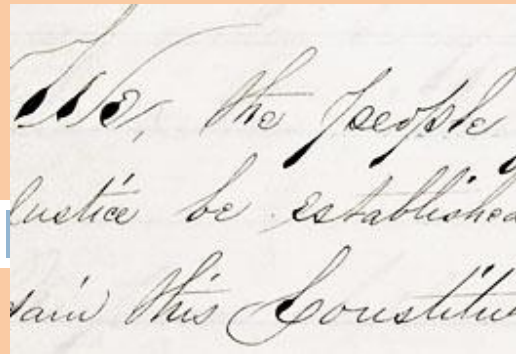 We, the people
Justice be established
dain this Constitu